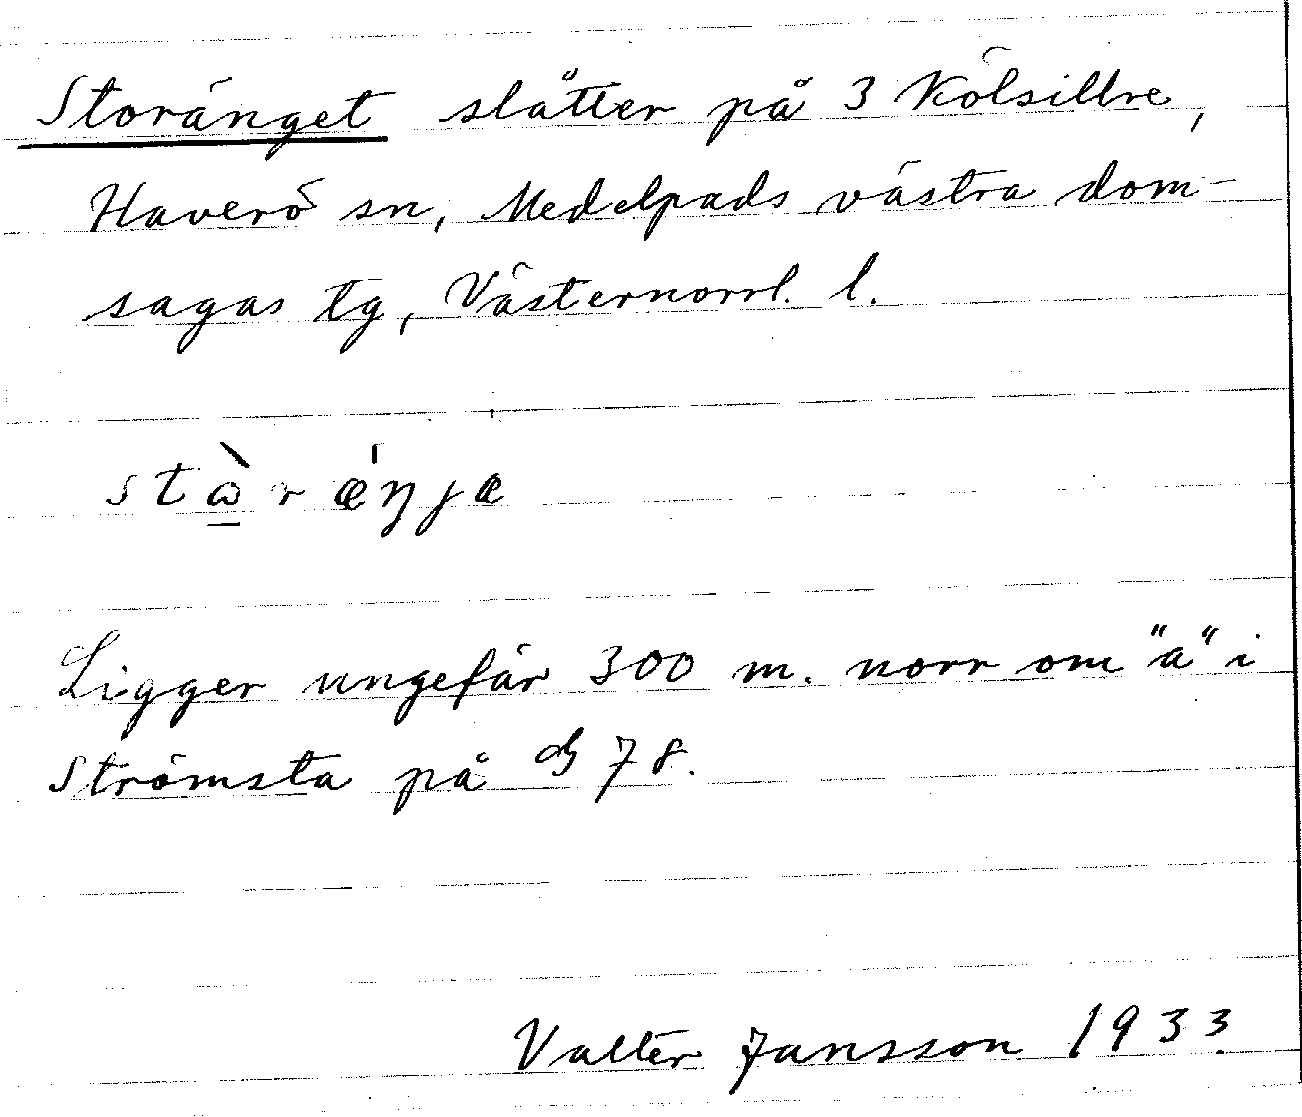 Storänget slåtter på 3 Kölsillre,
Haverö sn, Medelpads västra dom-
sagas tg, Västernorrl. l.
stὼ̱r ǽŋjæ
Ligger ungefär 300 m. norr om "a" i
Strömsta på 78.
Valter Jansson 1933.